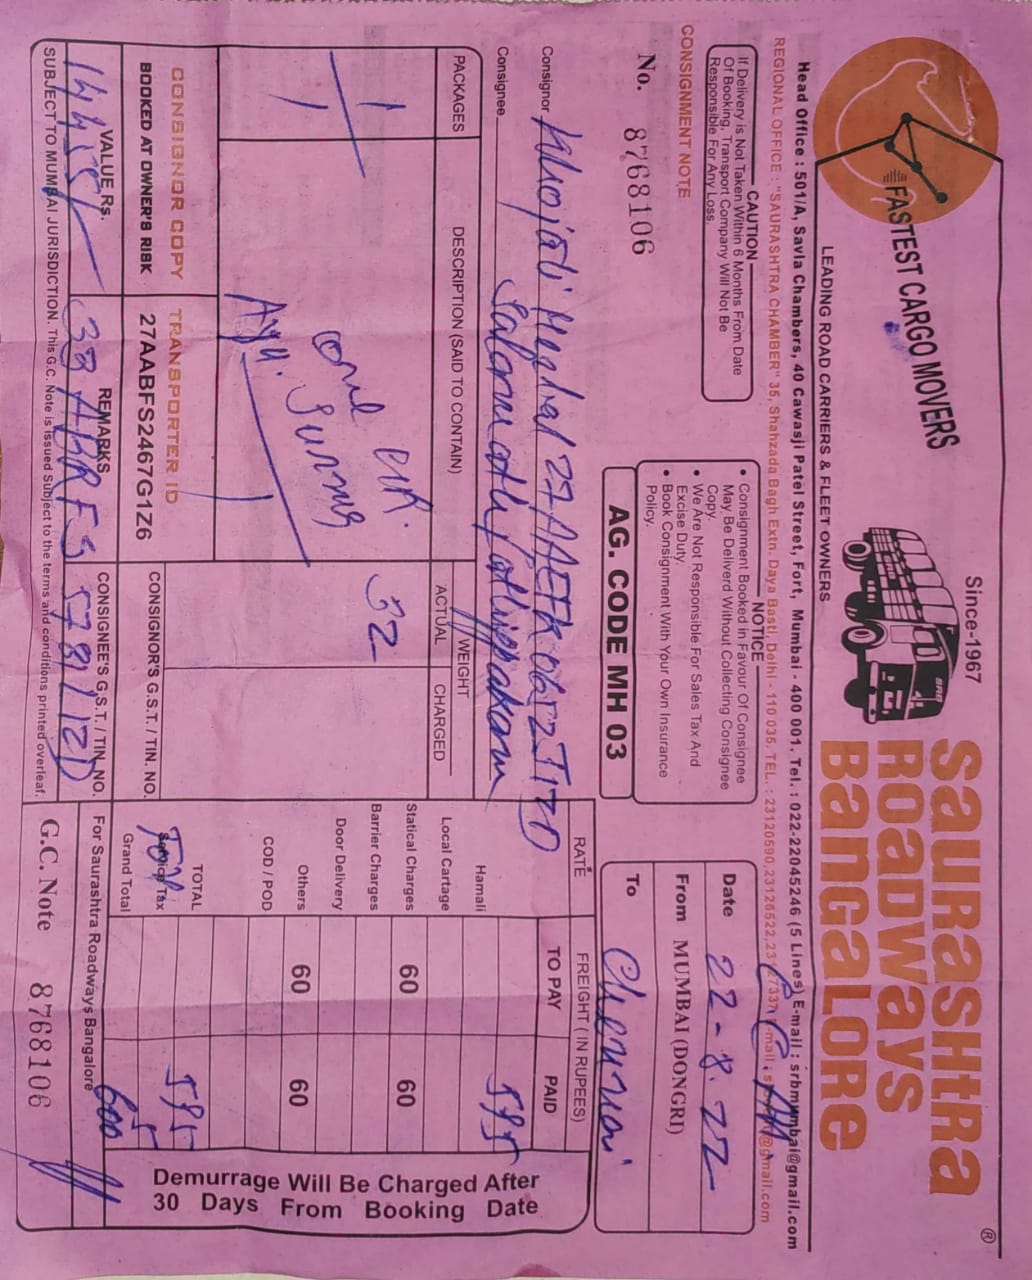 FASTEST CARGO MOVERS
Since-1967
SRB
SaURaSHtRa
ROaDWaYS
BanGaLORe
®
LEADING ROAD CARRIERS & FLEET OWNERS
Head Office : 501/A, Savla Chambers, 40 Cawasji Patel Street, Fort, Mumbai - 400 001. Tel. : 022-22045246 (5 Lines) E-mail : srbmumbai@gmail.com
REGIONAL OFFICE : "SAURASHTRA CHAMBER" 35, Shahzada Bagh Extn. Daya Basti, Delhi - 110 035. TEL. : 23120590,23126522,23127337 E-mail : @gmail.com
CAUTION
If Delivery is Not Taken Within 6 Months From Date
Of Booking, Transport Company Will Not Be
Responsible For Any Loss.
NOTICE
• Consignment Booked in Favour Of Consignee
May Be Deliverd Without Collecting Consignee
Copy.
• We Are Not Responsible For Sales Tax And
Excise Duty.
• Book Consignment With Your Own Insurance
Policy.
Date 22-8.22
From MUMBAI (DONGRI)
To Chennai
CONSIGNMENT NOTE
No. 8768106
AG. CODE MH 03
Consignor
Consignee
PACKAGES
DESCRIPTION (SAID TO CONTAIN)
WEIGHT
ACTUAL
CHARGED
RATE
FREIGHT ( IN RUPEES)
TO PAY
PAID
1
one
32
Hamali 595
Local Cartage
Statical Charges 60 60
Barrier Charges
Door Delivery
Others 60 60
COD / POD
TOTAL 595
Service Tax 5
Grand Total 600
Demurrage Will Be Charged After
30 Days From Booking Date
CONSIGNOR COPY
BOOKED AT OWNER'S RISK
TRANSPORTER ID
27AABFS2467G1Z6
CONSIGNOR'S G.S.T. / TIN. NO.
VALUE Rs.
REMARKS
CONSIGNEE'S G.S.T. / TIN. NO.
33ABRFS5781L1ZD
For Saurashtra Roadways Bangalore
SUBJECT TO MUMBAI JURISDICTION. This G.C. Note is issued Subject to the terms and conditions printed overleaf.
G.C. Note 8768106